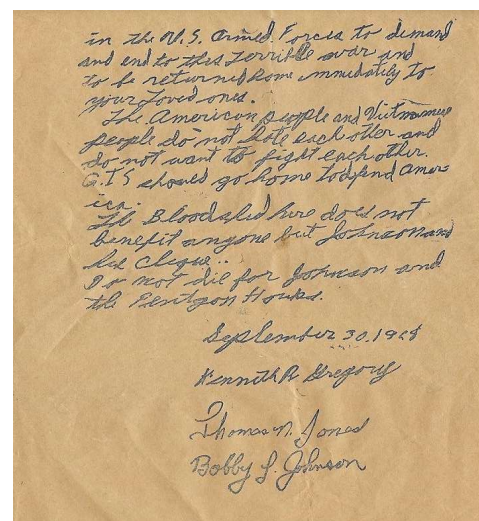 in the U.S. Armed Forces to demand
and end to this terrible war and
to be returned home immediatly to
your loved ones.
The American people and Vietnamese
people do not hate each other and
do not want to fight each other.
G.I S should go home to defend Amer-
ica.
The Bloodshed here does not
benefit anyone but Johnson and
his Cleque..
Do not die for Johnson and
the Pentgon Hawks.
September 30, 1968
Kenneth R Gregory
Thomas N. Jones
Bobby L. Johnson